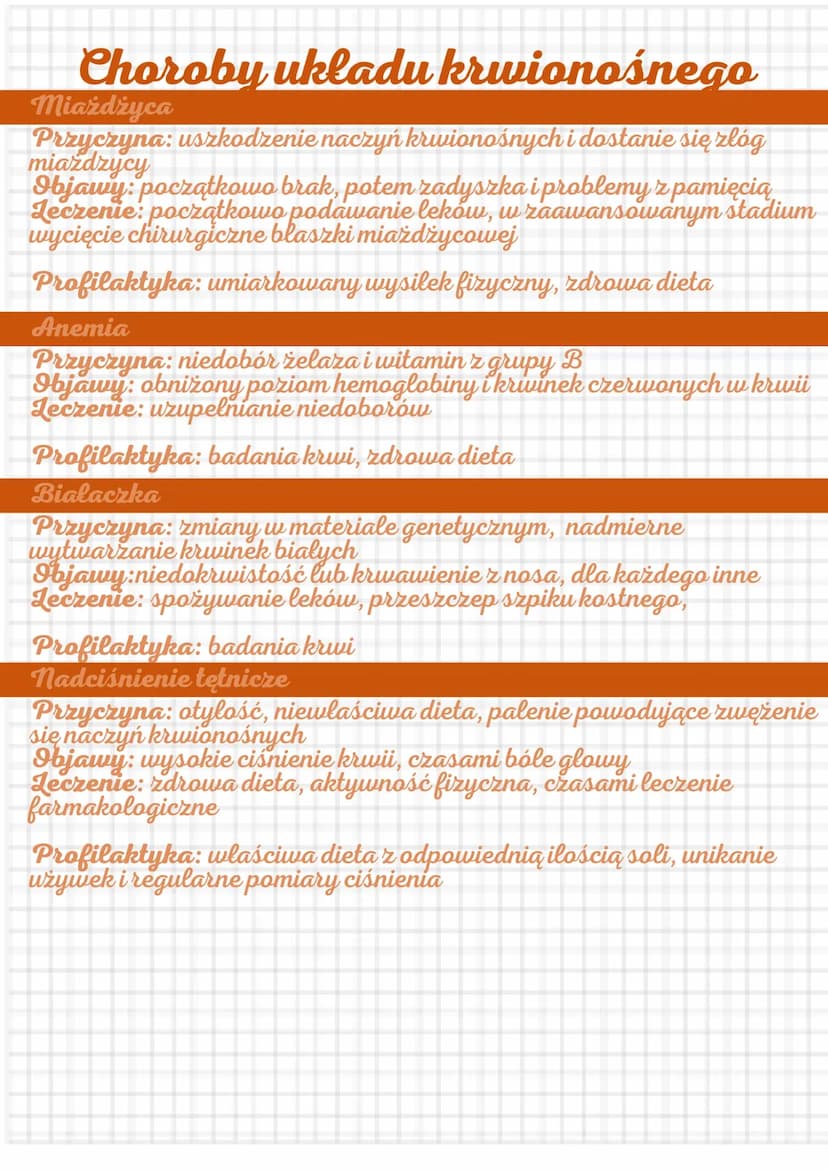 Choroby układu krwionośnego
Miażdżyca
Przyczyna: uszkodzenie naczyń krwionośnych i dostanie się złóg
miażdzycy
Objawy: początkowo brak, potem zadyszka i problemy z pamięcią
Leczenie: początkowo podawanie leków, w zaawansowanym stadium
wycięcie chirurgiczne blaszki miażdżycowej
Profilaktyka: umiarkowany wysiłek fizyczny, zdrowa dieta
Anemia
Przyczyna: niedobór żelaza i witamin z grupy B
Objawy: obniżony poziom hemoglobiny i krwinek czerwonych w krwii
Leczenie: uzupełnianie niedoborów
Profilaktyka: badania krwi, zdrowa dieta
Białaczka
Przyczyna: zmiany w materiale genetycznym, nadmierne
wytwarzanie krwinek białych
Objawy:niedokrwistość lub krwawienie z nosa, dla każdego inne
Leczenie: spożywanie leków, przeszczep szpiku kostnego,
Profilaktyka: badania krwi
Nadciśnienie tętnicze
Przyczyna: otyłość, niewłaściwa dieta, palenie powodujące zwężenie
się naczyń krwionośnych
Objawy: wysokie ciśnienie krwii, czasami bóle głowy
Leczenie: zdrowa dieta, aktywność fizyczna, czasami leczenie
farmakologiczne
Profilaktyka: właściwa dieta z odpowiednią ilością soli, unikanie
używek i regularne pomiary ciśnienia